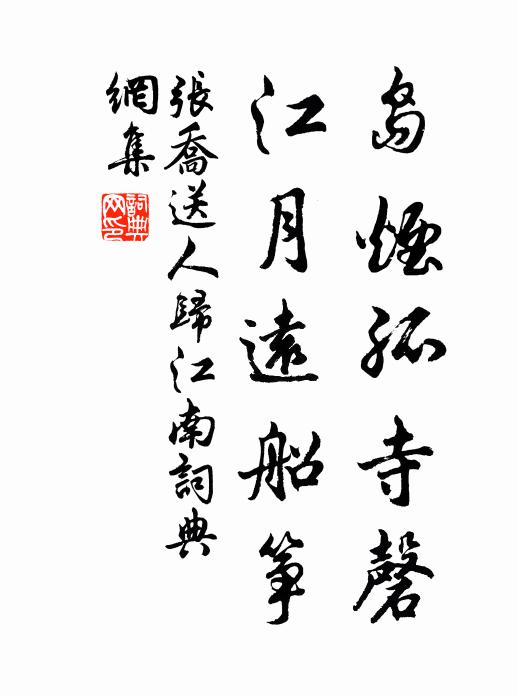 島煙孤寺磬
江月遠船筝
張喬送人歸江南詞典
網集
詞典
网印